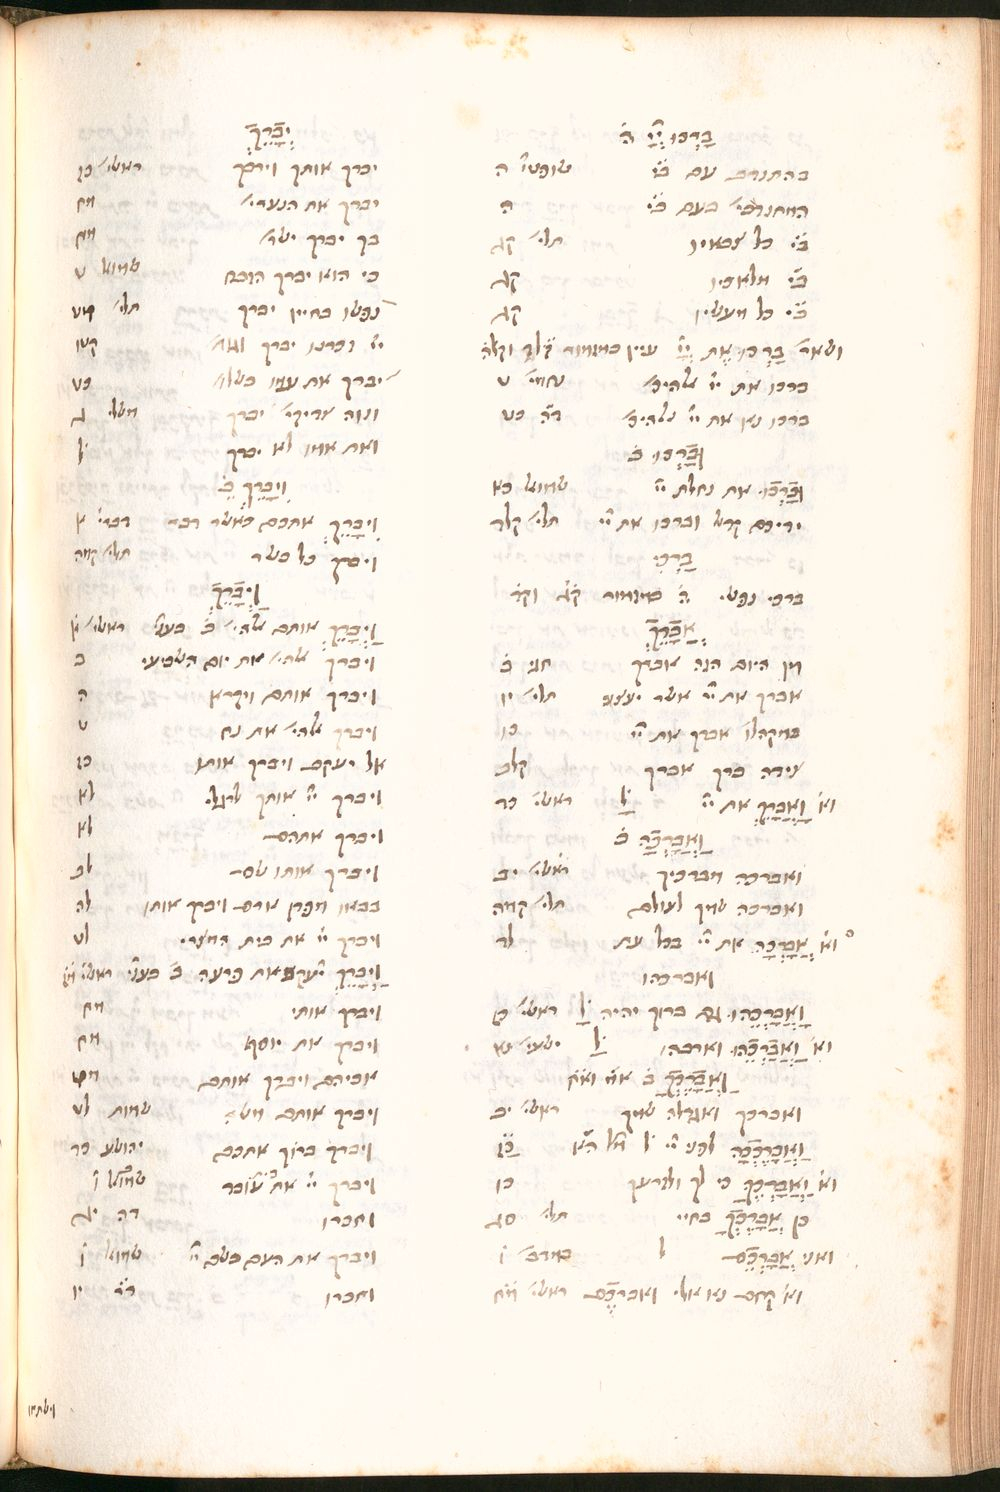 בָּרְכוּ יְיָ ה
בהתנדב עם ב׳ שופטי׳ ה
המתנדבי׳ בעם ב׳ ה
ב׳ כל צבאיו תלי׳ קג
ב׳ מלאכיו קג
ב׳ כל מעשיו קג
ושאר׳ בָּרְכוּ אֶת יְיָ עניין כמזמור קלד וקלה
ברכו את יי׳ אלהיכ׳ נחמי׳ ט
ברכו נא את יי׳ אלהיכ׳ דה כט
וּבָרְכוּ ב
וּבָרְכוּ את נחלת יי׳ שמואל כא
ידיכם קדש וברכו את יי׳ תלי׳ קלד
בָּרְכִי
ברכי נפשי ה׳ במזמור קג וקד
אֲבָרֵךְ
מן היום הזה אברך חגי ב
אברך את יי׳ אשר יעצני תלי׳ יו
במקהלי׳ אברך את יי׳ כו
צידה ברך אברך קלב
וא׳ וָאֲבָרֵךְ את יי׳ ל׳ ראשי׳ כד
וַאֲבָרְכָה ב
ואברכה מברכיך ראשי׳ יב
ואברכה שמך לעולם תלי׳ קמה
וא׳ אֲבָרְכָה את יי׳ בכל עת לד
ואברכהו
וָאֲבָרְכֵהוּ גם ברוך יהיה ל׳ ראשי׳ כז
וא׳ וַאֲבָרְכֵהוּ וארבהו ל׳ ישעי׳ נא
וַאֲבָרֶכְךָ ב׳
ואברכך ואגדלה שמך ראשי׳ יב
וַאֲבָרֶכְכָה לפני יי׳ ל׳ כז
וא׳ וַאֲבָרְכֶךָּ כי לך ולזרעך כו
כן אֲבָרֶכְךָ בחיי׳ תלי׳ סג
ואני אֲבָרְכֵם ל׳ במדב׳ ו
וא׳ קחם נא אלי ואברכם ראשי׳ מח
יְבָרֵךְ
יברך אותך וירבך ראשי׳ כח
יברך את הנערי׳ מח
בך יברך ישר׳ מח
כי הוא יברך הזבח שמואל ט
נפשו בחייו יברך תלי׳ מט
יי׳ זכרנו יברך קטו
יברך את עמו בשלו׳ כט
ונוה צדיקי׳ יברך משלי ג
ואת אמו לא יברך ל
וִיבָרֵךְ ב
וִיבָרֵךְ אתכם כאשר דבר דברי׳ א
ויברך כל בשר תלי׳ קמה
וַיְבָרֶךְ
וַיְבָרֶךְ אותם אלהי׳ ב׳ בעני׳ ראשי׳ א
ויברך אלהי׳ את יום השביעי ב
ויברך אותם ויקרא ה
ויברך אלהי׳ את נח ט
אל יעקב ויברך אותו כח
ויברך יי׳ אותך לרגלי לא
ויברך אתהם לא
ויברך אותו שם לב
בבאו מפדן ארם ויברך אותו לה
ויברך יי׳ את בית המצרי׳ לט
וַיְבָרֶךְ יעקב את פרעה ב׳ בעני׳ ראשי׳ מז
ויברך אותי מח
ויברך את יוסף מח
אביהם ויברך אותם מט
ויברך אותם משה שמות לט
ויברך ברוך אתכם יהושע כד
ויברך יי׳ את עובד שמואל ו
וחברו דה יג
ויברך את העם בשם יי׳ שמואל ו
וחברו דה יו
וישתחו